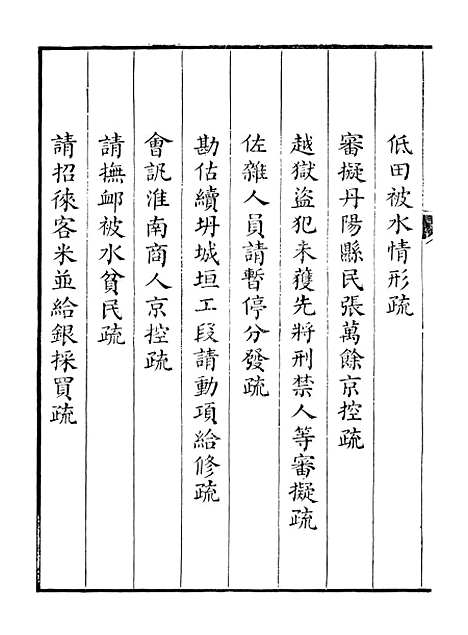 低田被水情形疏
審擬丹陽縣民張萬餘京控疏
越獄盜犯未獲先將刑禁人等審擬疏
佐雜人員請暫停分發疏
勘估續坍城垣工段請動項給修疏
會訊淮南商人京控疏
請撫卹被水貧民疏
請招徠客米並給銀採買疏